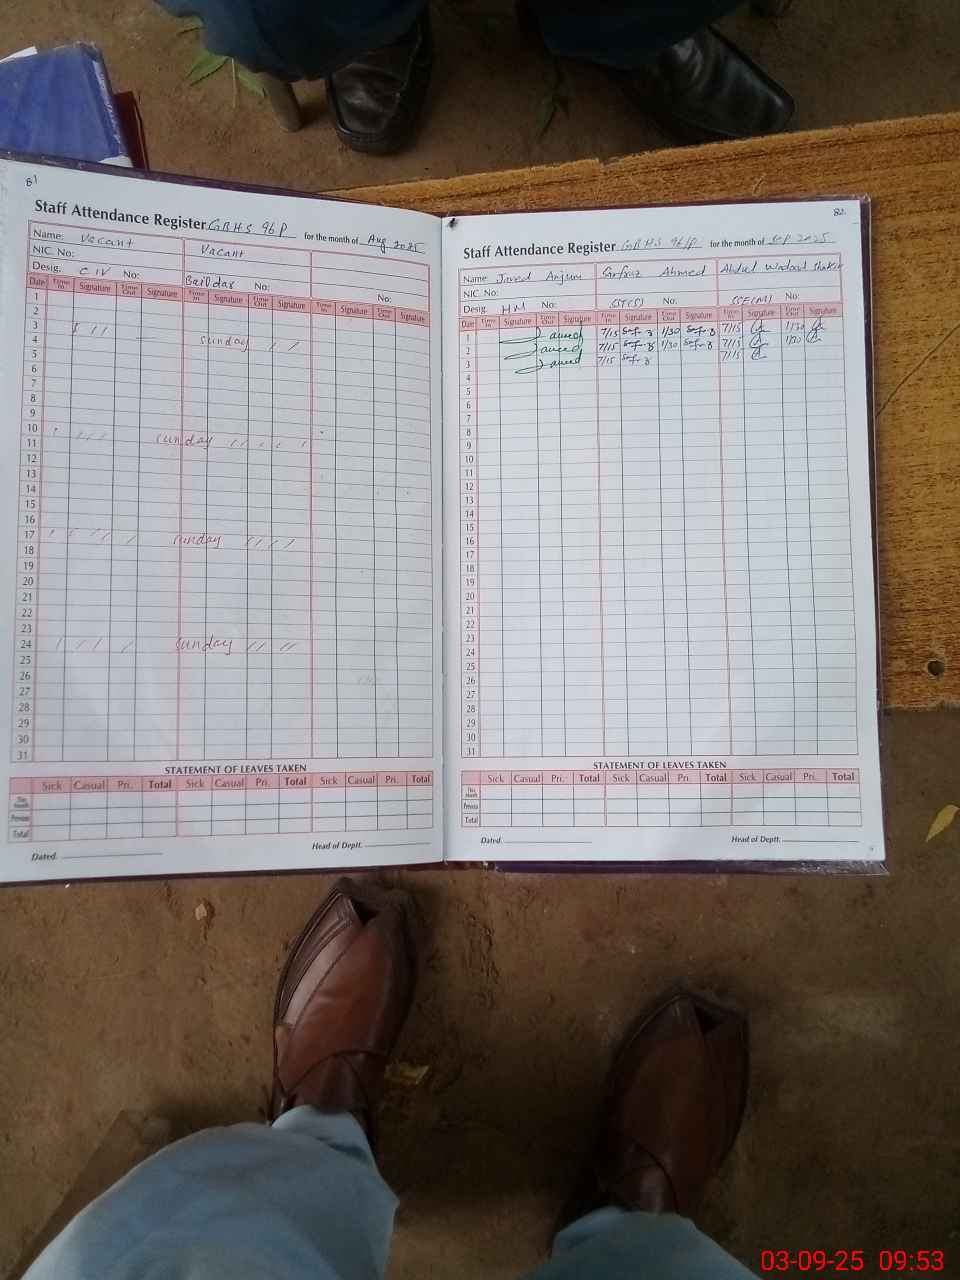 81
Staff Attendance Register GBHS 96P for the month of Aug 2025
Name: Vacant Vacant
NIC. No:
Desig. C IV No: No: No:
Date Time In Signature Time Out Signature Time In Signature Time Out Signature Time In Signature Time Out Signature
1
2
3
4 sunday
5
6
7
8
9
10
11 sunday
12
13
14
15
16
17 sunday
18
19
20
21
22
23
24 sunday
25
26
27
28
29
30
31
STATEMENT OF LEAVES TAKEN
Sick Casual Pri. Total Sick Casual Pri. Total Sick Casual Pri. Total
This Month
Previous
Total
Dated. Head of Deptt.
82
Staff Attendance Register GBHS 96/P for the month of Sep 2025
Name: Javed Anjum Sarfraz Ahmed Abdul Wadood Shakir
NIC No:
Desig. HM No: SST(S) No: No:
Date Time In Signature Time Out Signature Time In Signature Time Out Signature Time In Signature Time Out Signature
1 Javed 7/15 1/30 7/15 1/30
2 Javed 7/15 1/30 7/15 1/30
3 Javed 7/15 7/15
4
5
6
7
8
9
10
11
12
13
14
15
16
17
18
19
20
21
22
23
24
25
26
27
28
29
30
31
STATEMENT OF LEAVES TAKEN
Sick Casual Pri. Total Sick Casual Pri. Total Sick Casual Pri. Total
This Month
Previous
Total
Dated. Head of Deptt.
03-09-25 09:53